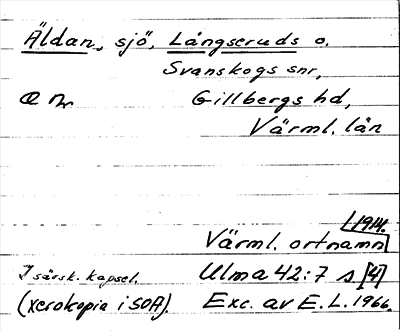 Äldan, sjö, Långseruds o.
Svanskogs snr,
Gillbergs hd,
Värml. län
1914.
Värml. ortnamn
I särsk. kapsel. Ulma 42:7 s [4]
(xerokopia i SOA). Exc. av E. L. 1966.